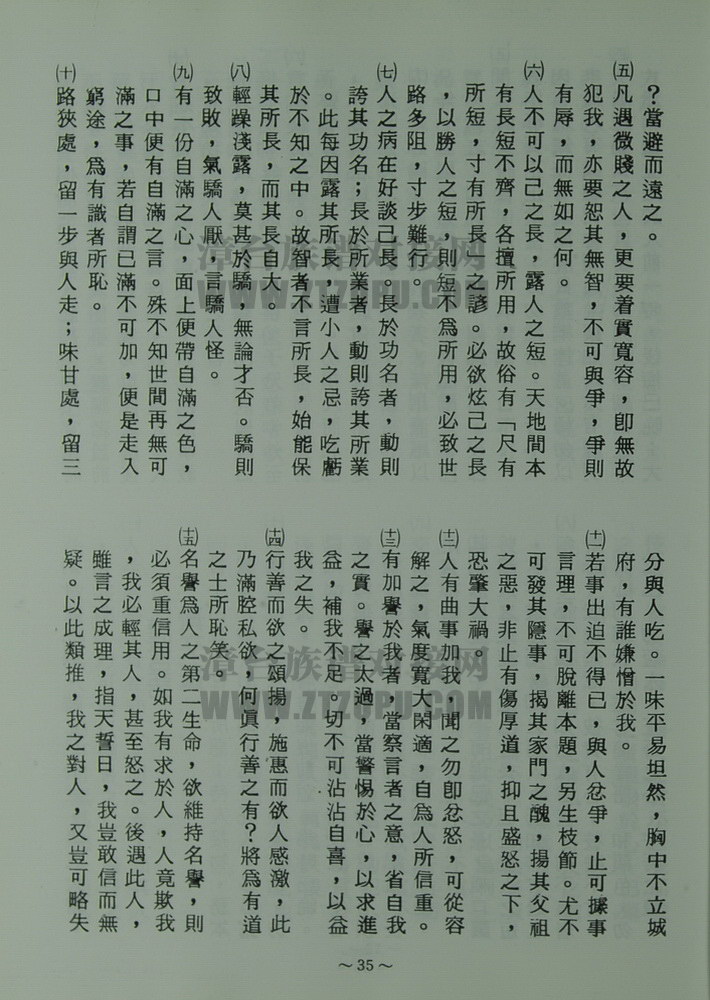 ？當避而遠之。
㈤凡遇微賤之人，更要着實寬容，卽無故
犯我，亦要恕其無智，不可與爭，爭則
有辱，而無如之何。
㈥人不可以己之長，露人之短。天地間本
有長短不齊，各擅所用，故俗有「尺有
所短，寸有所長」之諺。必欲炫己之長
，以勝人之短，則短不爲所用，必致世
路多阻，寸步難行。
㈦人之病在好談己長。長於功名者，動則
誇其功名；長於所業者，動則誇其所業
。此每因露其所長，遭小人之忌，吃虧
於不知之中。故智者不言所長，始能保
其所長，而其長自大。
㈧輕躁淺露，莫甚於驕，無論才否。驕則
致敗，氣驕人厭，言驕人怪。
㈨有一份自滿之心，面上便帶自滿之色，
口中便有自滿之言。殊不知世間再無可
滿之事，若自謂已滿不可加，便是走入
窮途，爲有識者所恥。
㈩路狹處，留一步與人走；味甘處，留三
分與人吃。一味平易坦然，胸中不立城
府，有誰嫌憎於我。
(十一)若事出迫不得已，與人忿爭，止可據事
言理，不可脫離本題，另生枝節。尤不
可發其隱事，揭其家門之醜，揚其父祖
之惡，非止有傷厚道，抑且盛怒之下，
恐肇大禍。
(十二)人有曲事加我，聞之勿卽忿怒，可從容
解之，氣度寬大閑適，自爲人所信重。
(十三)有加譽於我者，當察言者之意，省自我
之實。譽之太過　當警惕於心，以求進
益，補我不足。切不可沾沾自喜，以益
我之失。
(十四)行善而欲之頌揚，施惠而欲人感激，此
乃滿腔私欲，何眞行善之有？將爲有道
之士所恥笑。
(十五)名譽爲人之第二生命，欲維持名譽，則
必須重信用。如我有求於人，人竟欺我
，我必輕其人，甚至怒之。後遇此人，
雖言之成理，指天誓日，我豈敢信而無
疑。以此類推，我之對人，又豈可略失
～35～
漳台族谱对接网
WWW.ZTZUPU.COM
漳台族谱对接网
WWW.ZTZUPU.COM